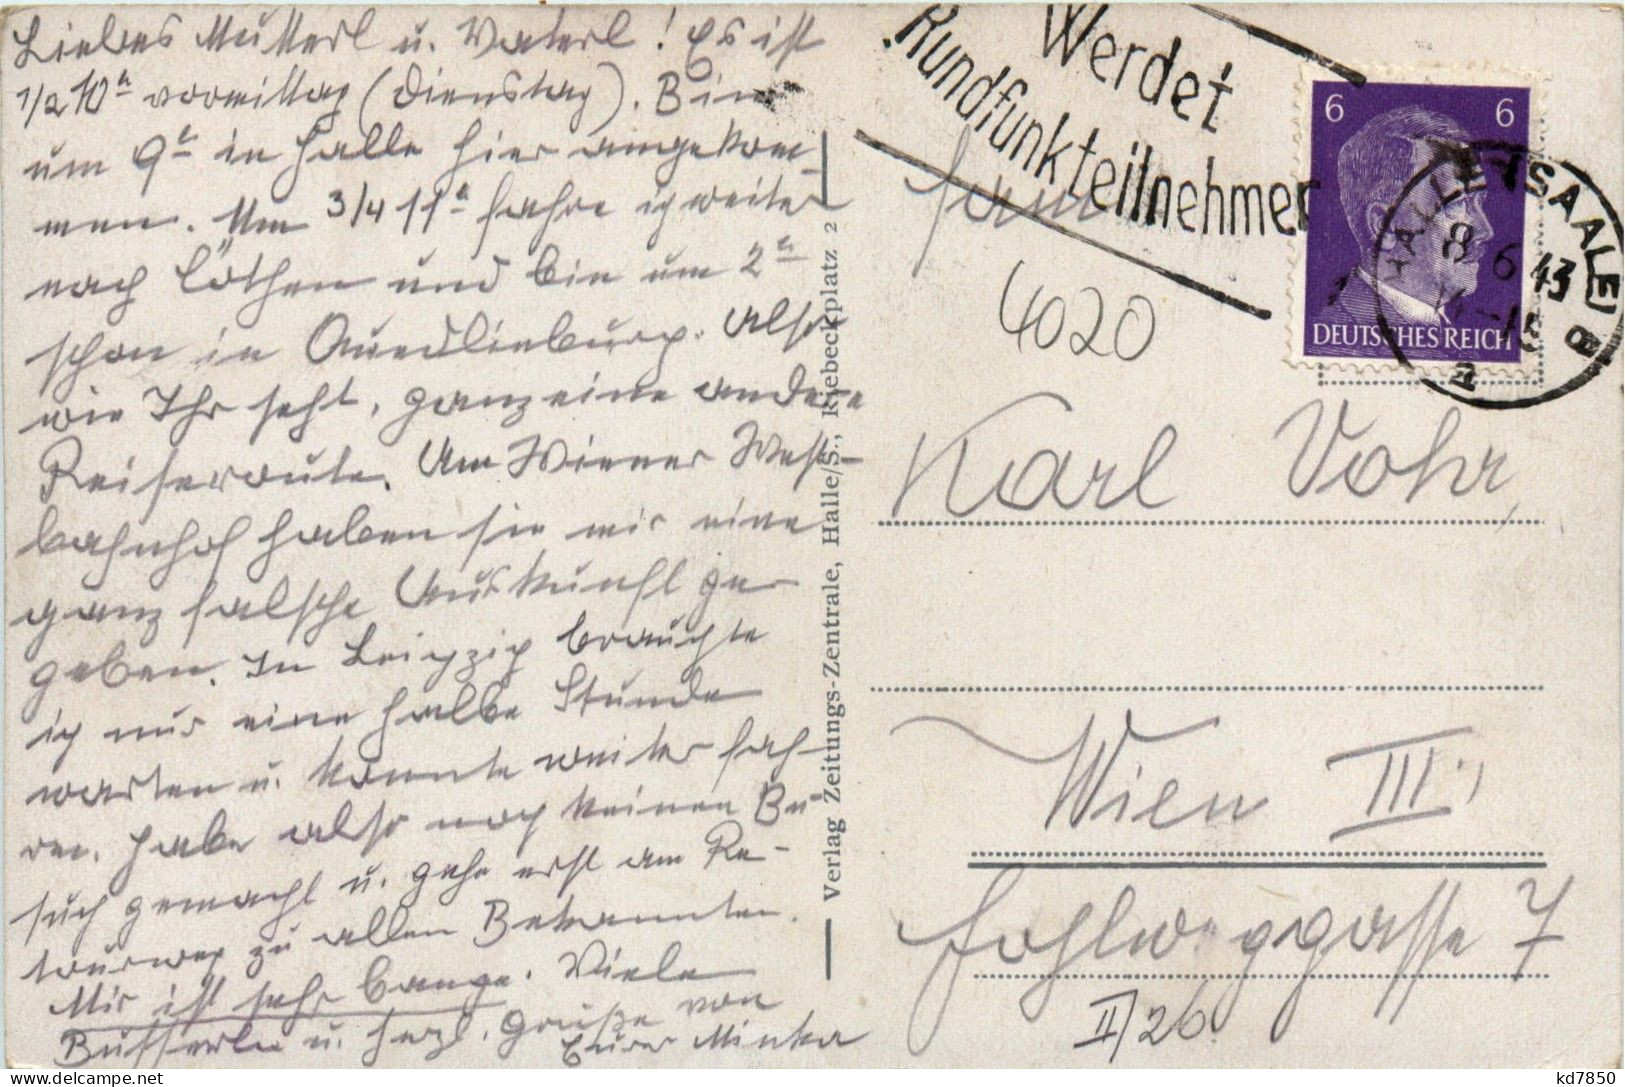 Liebes Mutterl u. Vaterl! Es ist
1/2 10h vormittag (Dienstag). Bin
um 9h in Halle hier angekom-
men. Um 3/4 11h fahre ich weiter
nach Cöthen und bin um 2h
schon in Quedlinburg. Also
wie Ihr seht, ganz eine andere
Reiseroute. Am Wiener West-
bahnhof haben sie mir eine
ganz falsche Auskunft ge-
geben. In Leipzig brauchte
ich nur eine halbe Stunde
warten u. konnte weiter fah-
ren. Habe also noch keinen Be-
such gemacht u. gehe erst am Re-
tourweg zu allen Bekannten.
Mir ist sehr bange. Viele
Busserln u. herzl. Grüße von
Eurer Minka
Verlag Zeitungs-Zentrale, Halle/S., Riebeckplatz 2
Werdet
Rundfunkteilnehmer
6 6
DEUTSCHES REICH
HALLE (SAALE)
8 6 43
-15
Fam.
4020
Karl Vohr,
Wien III.
Kohlweggasse 7
II/26.
kd7850